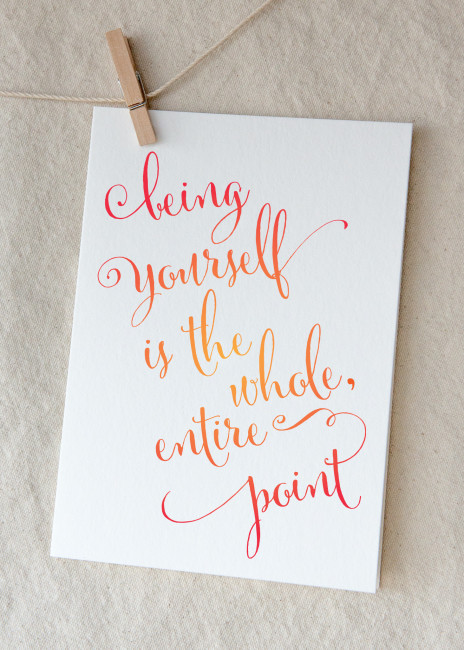 being
yourself
is the
whole,
entire
point